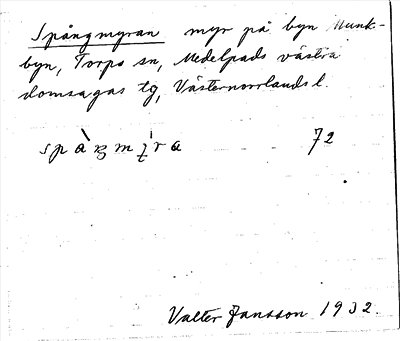 Spångmyran myr på byn Munk-
byn, Torps sn, Medelpads västra
domsagas tg, Västernorrlands l.
72
Valter Jansson 1932.